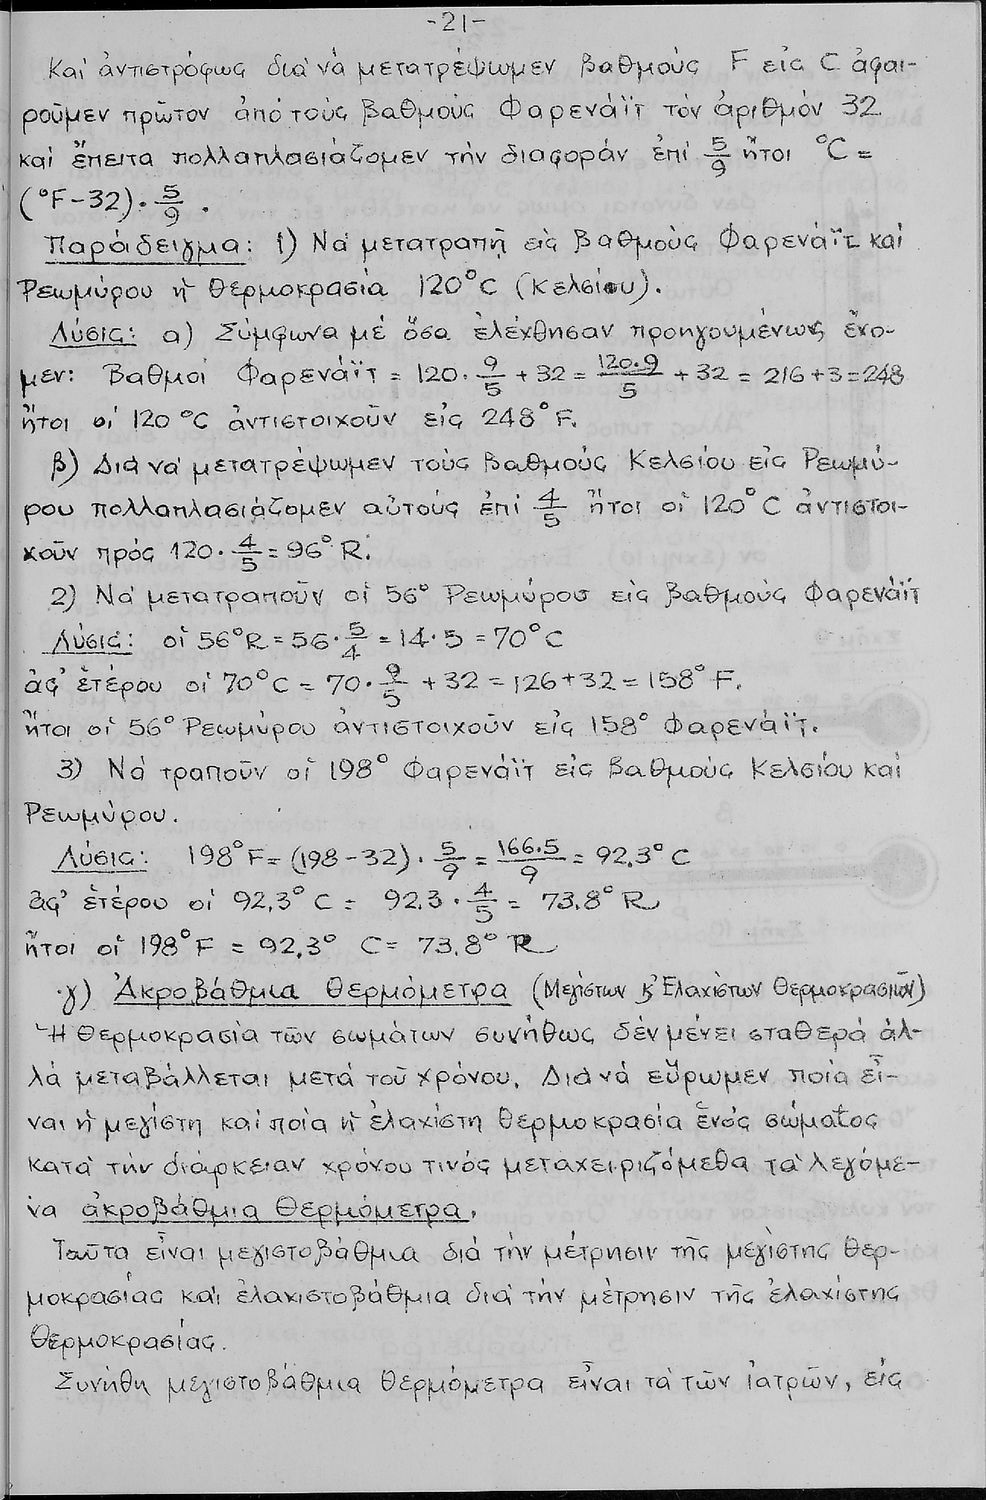 -21-
Καί ἀντιστρόφως διά νά μετατρέψωμεν βαθμούς F εἰς C ἀφαι-
ροῦμεν πρῶτον ἀπό τούς βαθμούς Φαρενάϊτ τόν ἀριθμόν 32
καί ἔπειτα πολλαπλασιάζομεν τήν διαφοράν ἐπί 5/9 ἤτοι °C =
(°F-32)·5/9.
Παράδειγμα: 1) Νά μετατραπῇ εἰς βαθμούς Φαρενάϊτ καί
Ρεωμύρου ἡ θερμοκρασία 120°C (Κελσίου).
Λύσις: α) Σύμφωνα μέ ὅσα ἐλέχθησαν προηγουμένως ἔχο-
μεν: Βαθμοί Φαρενάϊτ = 120·9/5 + 32 = 120·9/5 + 32 = 216+3=248
ἤτοι οἱ 120°C ἀντιστοιχοῦν εἰς 248°F.
β) Διά νά μετατρέψωμεν τούς βαθμούς Κελσίου εἰς Ρεωμύ-
ρου πολλαπλασιάζομεν αὐτούς ἐπί 4/5 ἤτοι οἱ 120°C ἀντιστοι-
χοῦν πρός 120·4/5=96°R.
2) Νά μετατραποῦν οἱ 56° Ρεωμύρου εἰς βαθμούς Φαρενάϊτ
Λύσις: οἱ 56°R=56·5/4=14·5=70°C
ἀφ' ἑτέρου οἱ 70°C = 70·9/5 + 32 = 126+32 = 158°F.
ἤτοι οἱ 56° Ρεωμύρου ἀντιστοιχοῦν εἰς 158° Φαρενάϊτ.
3) Νά τραποῦν οἱ 198° Φαρενάϊτ εἰς βαθμούς Κελσίου καί
Ρεωμύρου.
Λύσις: 198°F=(198-32)·5/9=166·5/9=92,3°C
ἀφ' ἑτέρου οἱ 92,3°C = 92,3·4/5= 73,8°R
ἤτοι οἱ 198°F = 92,3° C= 73,8°R
γ) Ἀκροβάθμια Θερμόμετρα (Μεγίστων & Ἐλαχίστων Θερμοκρασιῶν)
Ἡ θερμοκρασία τῶν σωμάτων συνήθως δέν μένει σταθερά ἀλ-
λά μεταβάλλεται μετά τοῦ χρόνου. Διά νά εὕρωμεν ποία εἶ-
ναι ἡ μεγίστη καί ποία ἡ ἐλαχίστη θερμοκρασία ἑνός σώματος
κατά τήν διάρκειαν χρόνου τινός μεταχειριζόμεθα τά λεγόμε-
να ἀκροβάθμια θερμόμετρα.
Ταῦτα εἶναι μεγιστοβάθμια διά τήν μέτρησιν τῆς μεγίστης θερ-
μοκρασίας καί ἐλαχιστοβάθμια διά τήν μέτρησιν τῆς ἐλαχίστης
θερμοκρασίας.
Συνήθη μεγιστοβάθμια θερμόμετρα εἶναι τά τῶν ἰατρῶν, εἰς